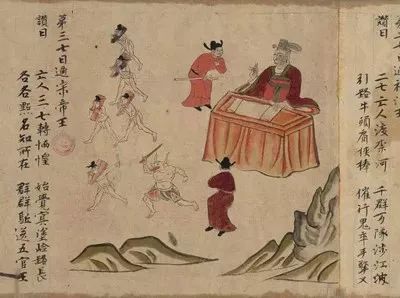 讚曰
二七亡人渡奈河 千群万隊涉江波
引路牛頭肩俠棒 催行鬼卒手擎叉
第三七日過宗帝王
讚曰
亡人三七轉恓惶 始覺冥塗險路長
各各點名知所在 群群駈送五官王